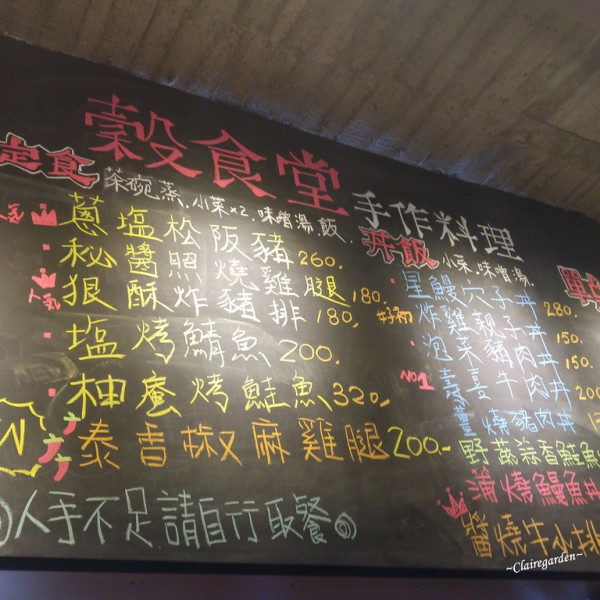 穀食堂 手作料理
定食 茶碗蒸.小菜×2.味噌湯.飯.
人気 蔥塩松阪豬 260.
秘醬照燒雞腿 180.
人気 狠酥炸豬排 180.
塩烤鯖魚 200.
柚蜜烤鮭魚 320.
泰香椒麻雞腿 200.
人手不足請自行取餐
丼飯 小菜.味噌湯.
星鰻穴子丼 280.
炸雞親子丼 150.
泡菜豬肉丼 150.
NO1 壽喜牛肉丼 200
燒豬肉丼
野菜蒜香鮭魚
蒲燒鰻魚丼
醬燒牛小排
~Clairegarden~